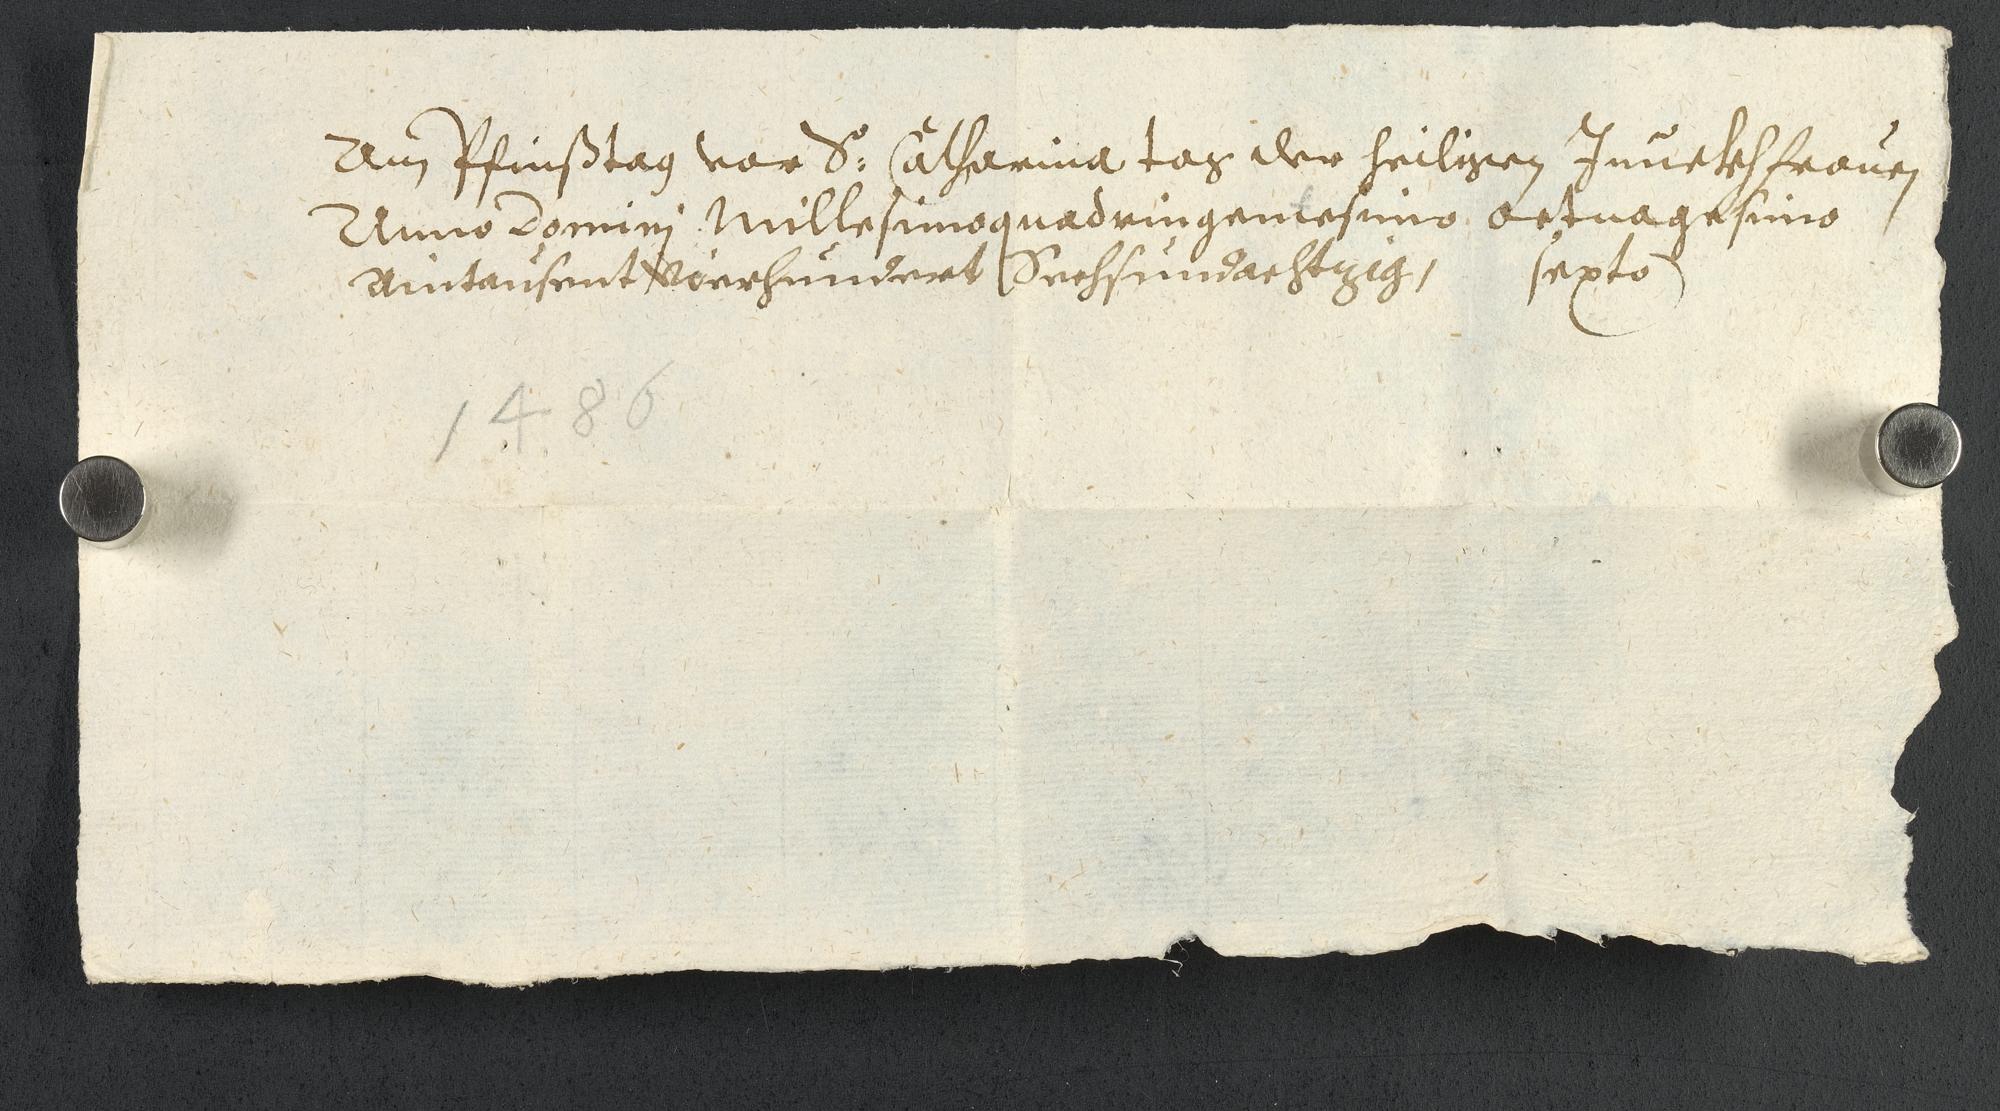 Am Pfinßtag vor S: Catharina tag der heiligen Junckhfrauen
Anno Dominj Millesimoquadringentesimo octuagesimo
Aintausent Vierhundert Sechsundachtzig, sexto
1486